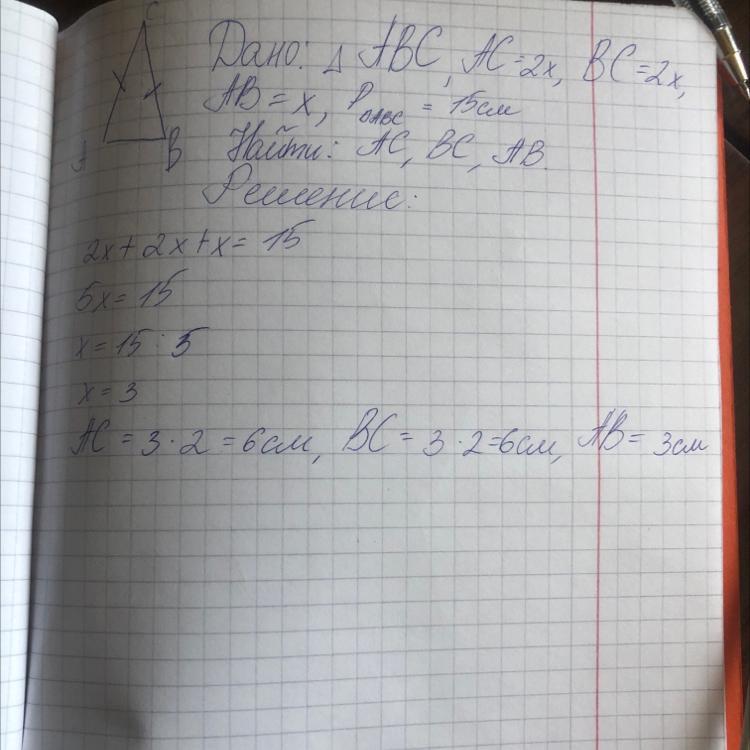 C
A
B
Дано: △ ABC, AC=2x, BC=2x,
AB=x, P△ABC = 15см
Найти: AC, BC, AB.
Решение:
2x+2x+x=15
5x=15
x=15:5
x=3
AC=3·2=6см, BC=3·2=6см, AB=3см